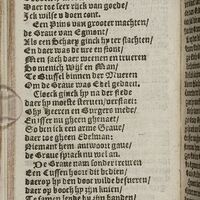 Daer toe seer rijck van goede/
Ick wilse u doen cont.
Een Prins van grooter machten/
de Grave van Egmont/
Als een Schaep ginck hy ter slachten/
En daer was de ure en stont/
Men sach daer weenen en trueren
So menich Wijf en Man/
Te Brussel binnen der Mueren
Om de Grave was Edel gedaen.
Cloeck ginck hy na der stede
daer hy moeste sterven/verstaet:
Ghy Heeren en Burgers mede/
En isser nu gheen ghenaet/
So ben ick een arme Grave/
daer toe gheen Edelman:
Niemant hem antwoort gaue/
de Grave sprack nu wel an.
De Grave nam sonder trueren
Een Cussen hoort dit bedien/
daerop hy den doot wilde besueren/
daer op booch hy zijn knien/
Te samen leyde hy zijn handen/